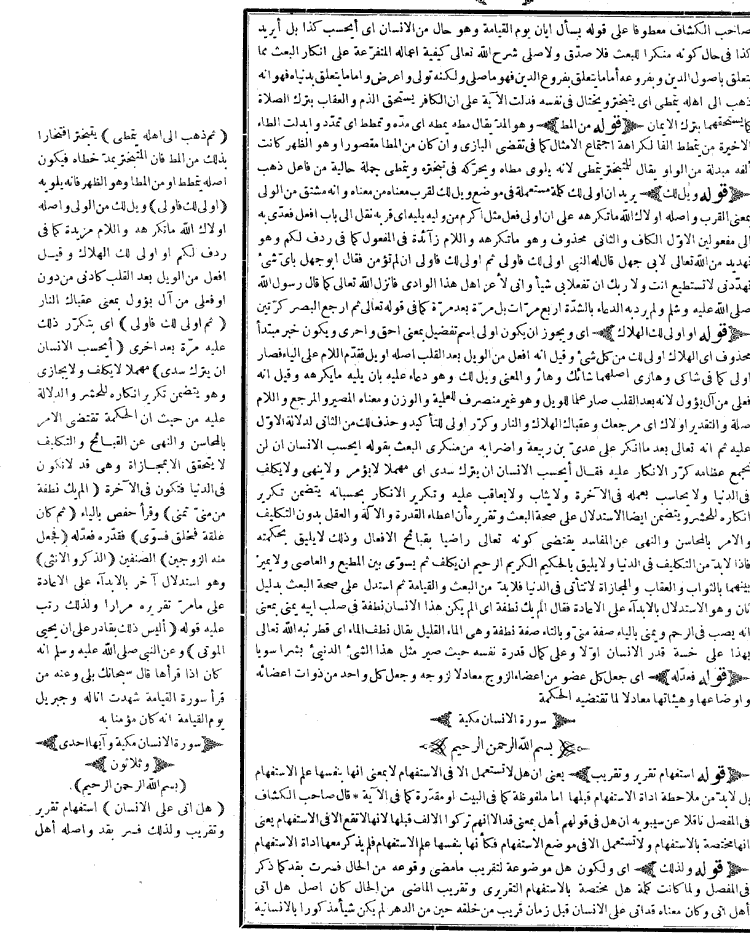 صاحب الكشاف معطوفا على قوله يسأل ايان يوم القيامة وهو حال من الانسان اى أيحسب كذا بل أيريد
كذا فى حال كونه منكرا للبعث فلا صدّق ولاصلى شرح الله تعالى كيفية اعماله المتفرّعة على انكار البعث مما
يتعلق باصول الدين وبفروعه أمامايتعلق بفروع الدين فهو ماصلى ولكنه تولى واعرض وامامايتعلق بدنياه فهو انه
ذهب الى اهله يتمطى اى يتبختر ويختال فى نفسه فدلت الآية على ان الكافر يستحق الذم والعقاب بترك الصلاة
كما يستحقهما بترك الايمان قوله من المط وهو المدّ يقال مطه يمطه اى مدّه وتمطط اى تمدّد وابدلت الطاء
الاخيرة من تمطط الفا لكراهة اجتماع الامثال كما فى تقضى البازى وان كان من المطا مقصورا وهو الظهر كانت
ألفه مبدلة من الواو يقال للمتبختر يتمطى لانه يلوى مطاه ويحرّكه فى تبختره ويتمطى جملة حالية من فاعل ذهب
قوله ويل لك يريد ان اولى لك كلمة مستعملة فى موضع ويل لك لقرب معناه من معناه وانه مشتق من الولى
بمعنى القرب واصله اولاك الله ماتكرهه على ان اولى فعل مثل اكرم من وليه يليه اى قربه نقل الى باب افعل فعدّى به
الى مفعولين الاوّل الكاف والثانى محذوف وهو ماتكرهه واللام زآئدة فى المفعول كما فى ردف لكم وهو
تهديد من الله تعالى لابى جهل قال له النبى اولى لك فاولى ثم اولى لك فاولى ان لم تؤمن فقال ابوجهل باىّ شئ
تهدّدنى لاتستطيع انت ولا ربك ان تفعلابى شيأ وانى لأعز اهل هذا الوادى فانزل الله تعالى كما قال رسول الله
صلى الله عليه وسلم ولم يرد به الدعاء بالشدّة اربع مرّات بل مرّة بعد مرّة كما فى قوله تعالى ثم ارجع البصر كرّتين
قوله او اولى لك الهلاك اى ويجوز ان يكون اولى اسم تفضيل بمعنى احق واحرى ويكون خبر مبتدأ
محذوف اى الهلاك اولى لك من كل شئ وقيل انه افعل من الويل بعد القلب اصله اويل فقدّم اللام على الياء فصار
اولى كما فى شاكى وهارى اصلهما شائك وهائر والمعنى ويل لك وهو دعاء عليه بان يليه مايكرهه وقيل انه
فعلى من آل يؤول لانه بعد القلب صار علما للويل وهو غير منصرف للعلمية والوزن ومعناه المصير والمرجع واللام
صلة والتقدير اولاك اى مرجعك وعقباك الهلاك والنار وكرّر اولى للتأكيد وحذف لك من الثانى لدلالة الاوّل
عليه ثم انه تعالى بعد ماانكر على عدىّ بن ربيعة واضرابه من منكرى البعث بقوله ايحسب الانسان ان لن
نجمع عظامه كرّر الانكار عليه فقال أيحسب الانسان ان يترك سدى اى مهملا لايؤمر ولاينهى ولايكلف
فى الدنيا ولا يحاسب بعمله فى الآخرة ولايثاب ولايعاقب عليه وتكرير الانكار بحسبانه يتضمن تكرير
انكاره للحشر ويتضمن ايضا الاستدلال على صحة البعث وتقريره أن اعطاء القدرة والآلة و العقل بدون التكليف
والامر بالمحاسن والنهى عن المفاسد يقتضى كونه تعالى راضيا بقبائح الافعال وذلك لايليق بحكمته
فاذا لابدّ من التكليف فى الدنيا ولايليق بالحكيم الكريم الرحيم ان يكلف ثم يسوّى بين المطيع والعاصى ولايميز
بينهما بالثواب والعقاب و المجازاة لاتتأتى فى الدنيا فلابدّ من البعث و القيامة ثم استدل على صحة البعث بدليل
ثان وهو الاستدلال بالابدآء على الاعادة فقال ألم يك نطفة اى الم يكن هذا الانسان نطفة فى صلب ابيه يمنى بمعنى
انه يصب فى الرحم ويمنى بالياء صفة منىّ وبالتاء صفة نطفة وهى الماء القليل يقال نطف الماء اى قطر نبه الله تعالى
بهذا على خسة قدر الانسان اوّلا وعلى كمال قدرة نفسه حيث صير مثل هذا الشئ الدنيئ بشرا سويا
قوله فعدّله اى جعل كل عضو من اعضاء الزوج معادلا لزوجه وجعل كل واحد من ذوات اعضائه
واوضاعها وهيئاتها معادلا لما تقتضيه الحكمة
سورة الانسان مكية
بسم الله الرحمن الرحيم
قوله استفهام تقرير وتقريب يعنى ان هل لاتستعمل الا فى الاستفهام لا بمعنى انها بنفسها علم الاستفهام
بل لابدّ من ملاحظة اداة الاستفهام قبلها اما ملفوظة كما فى البيت او مقدّرة كما فى الآية * قال صاحب الكشاف
فى المفصل ناقلا عن سيبويه ان هل فى قولهم أهل بمعنى قد الا انهم تركوا الالف قبلها لانها لاتقع الا فى الاستفهام يعنى
انها مختصة بالاستفهام ولاتستعمل الا فى موضع الاستفهام فكأنها بنفسها علم الاستفهام فلم يذكر معها اداة الاستفهام
قوله ولذلك اى ولكون هل موضوعة لتقريب مامضى وقوعه من الحال فسرت بقد كما ذكر
فى المفصل ولما كانت كلمة هل مختصة بالاستفهام التقريرى وتقريب الماضى من الحال كان اصل هل اتى
أهل اتى وكان معناه قد اتى على الانسان قبل زمان قريب من خلقه حين من الدهر لم يكن شيأ مذكورا بالانسانية
( ثم ذهب الى اهله يتمطى ) يتبختر افتخارا
بذلك من المط فان المتبختر يمدّ خطاه فيكون
اصله يتمطط او من المطا وهو الظهر فانه يلويه
( اولى لك فاولى ) ويل لك من الولى واصله
اولاك الله ماتكرهه واللام مزيدة كما فى
ردف لكم او اولى لك الهلاك وقيل
افعل من الويل بعد القلب كادنى من دون
او فعلى من آل يؤول بمعنى عقباك النار
( ثم اولى لك فاولى ) اى يتكرّر ذلك
عليه مرّة بعد اخرى ( أيحسب الانسان
ان يترك سدى ) مهملا لايكلف ولايجازى
وهو يتضمن تكرير انكاره للحشر والدلالة
عليه من حيث ان الحكمة تقتضى الامر
بالمحاسن والنهى عن القبائح والتكليف
لا يتحقق الابمجازاة وهى قد لاتكون
فى الدنيا فتكون فى الآخرة ( الم يك نطفة
من منىّ تمنى ) وقرأ حفص بالياء ( ثم كان
علقة فخلق فسوّى ) فقدّره فعدّله ( فجعل
منه الزوجين ) الصنفين ( الذكر والانثى )
وهو استدلال آخر بالابدآء على الاعادة
على مامرّ تقريره مرارا ولذلك رتب
عليه قوله ( أليس ذلك بقادر على ان يحيى
الموتى ) وعن النبى صلى الله عليه وسلم انه
كان اذا قرأها قال سبحانك بلى وعنه من
قرأ سورة القيامة شهدت اناله وجبريل
يوم القيامة انه كان مؤمنا به
سورة الانسان مكية وآيها احدى
وثلاثون
(بسم الله الرحمن الرحيم).
( هل اتى على الانسان ) استفهام تقرير
وتقريب ولذلك فسر بقد واصله أهل